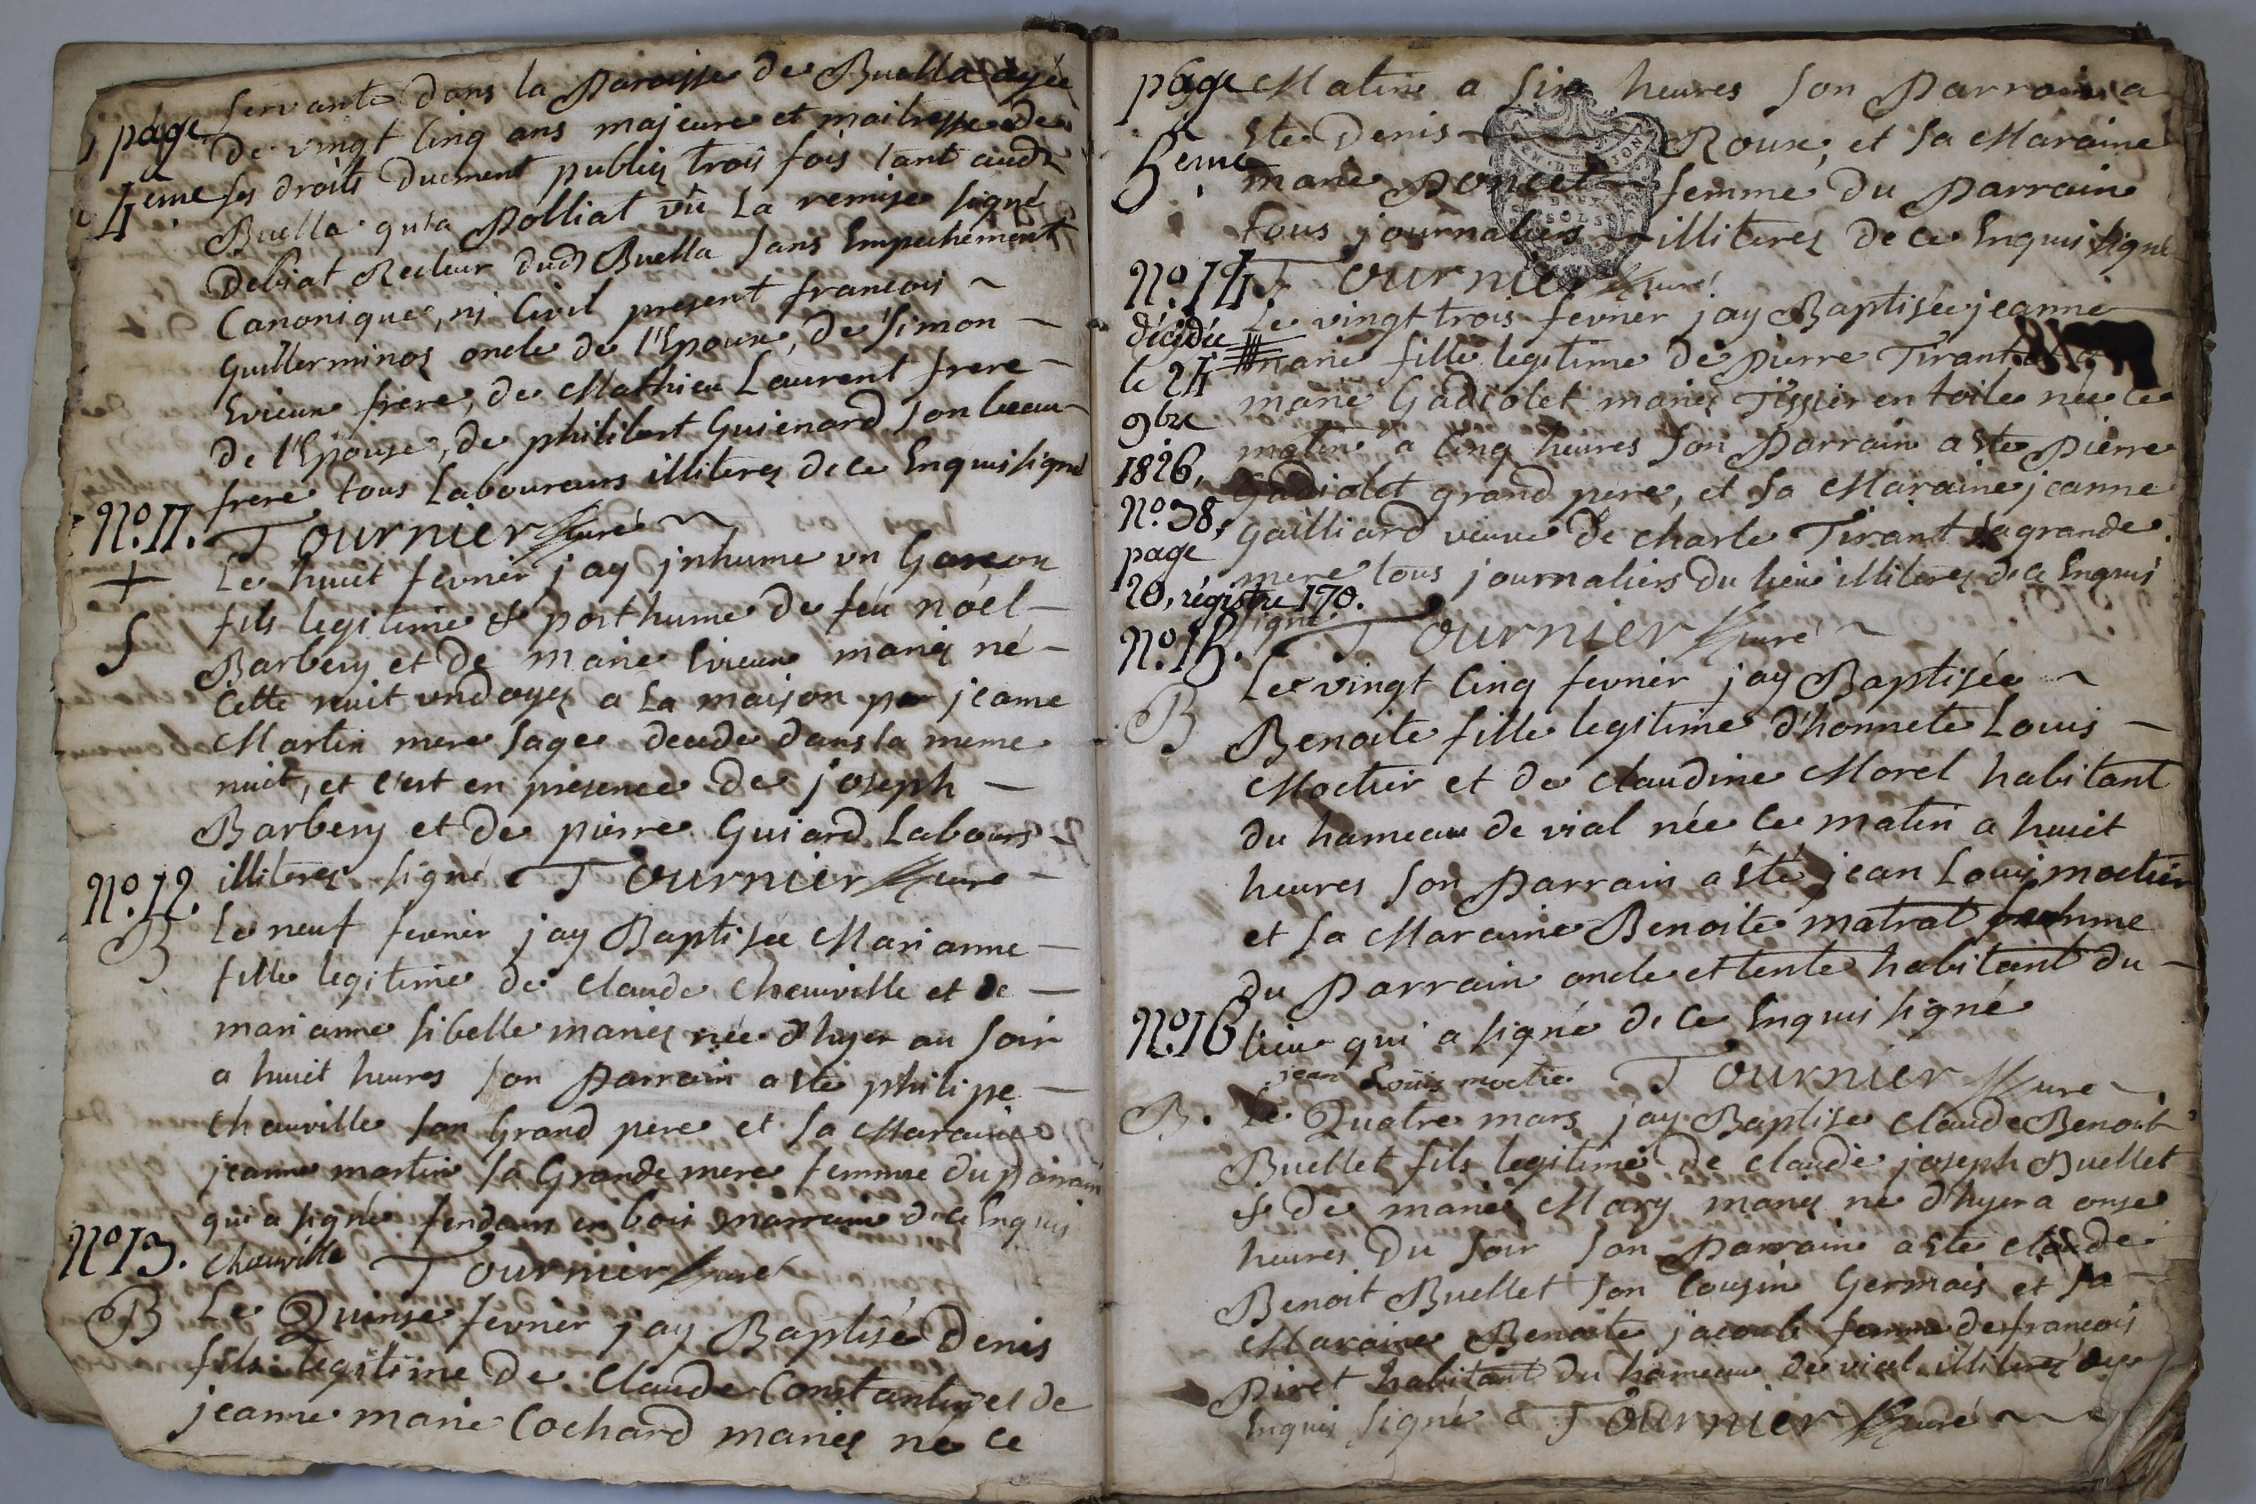 page
4eme
servante dans la Paroisse de Buella agée
de vingt cinq ans majeure et maitresse de
ses droits duement publiez trois fois tant audt
Buella qu'a Polliat vû la remise signé
Debiat Recteur dudt Buella sans Empechement
Canonique, ni Civil present francois ~
Guillerminoz oncle de l'Epoux, de Simon —
Evieux frere, de Mathieu Laurent frere —
de l'Epouse, de philibert Guienard son beau-
frere tous Laboureurs illiterez de ce Enquis signé
Tournier Curé ~
No. 11.
+
S
Le huit fevrier jay jnhumé un Garçon
fils legitime & posthume de feu noël —
Barbery et de marie Evieux mariez né —
cette nuit undoyez a la maison par jeanne
Martin mere sage decedé dans la meme
nuit, et c'est en presence de joseph —
Barbery et de pierre Guiard Labours —
illiterez signé Tournier Curé —
No. 12.
B
Le neuf fevrier jay Baptisée Marianne —
fille legitime de Claude Chauville et de —
marianne sibelle mariez née d'hyer au soir
a huit heures son Parrain a êté philipe —
Chauville son Grand pere et sa Maraine
jeanne martin sa Grande mere femme du parrain
qui a signé fendeur en bois marraine de ce Enquis
Chauville Tournier Curé
No 13.
B
Le Quinze fevrier jay Baptisé Denis
fils legitime de Claude Constantin et de
jeanne marie Cochard mariez né ce
page
5eme
Matin a six heures son Parrain a
êté Denis Roux, et sa Maraine
marie Poncet femme du Parrain
tous journaliers illiterez de ce Enquis signé
Tournier Curé
No. 14.
décédée
le 24
9bre
1826,
No. 38,
page
20, régistre 170.
Le vingt trois fevrier jay Baptisée jeanne
marie fille legitime de pierre Tirant et
marie Gadiolet mariez Tissier en toile née ce
matin a cinq heures son Parrain a êté pierre
Gadiolet grand pere, et sa Maraine jeanne
Gailliard veuve de charle Tirant sa grande
mere tous journaliers du lieu illiterez de ce Enquis
signé Tournier Curé ~
No. 15.
B
Le vingt cinq fevrier jay Baptisée ~
Benoite fille legitime d'honnete Louis —
Moctier et de claudine Morel habitant
du hameau de vial née ce matin a huit
heures son Parrain a êté jean Louis moctier
et sa Maraine Benoite matrat femme
du Parrain oncle et tente habitant du —
lieu qui a signé de ce Enquis signé
jean Louis moctier Tournier Curé
No. 16
B.
Le Quatre mars jay Baptisé Claude Benoit
Buellet fils legitime de claude joseph Buellet
& de marie Mary mariez né d'hyer a onze
heures du soir son Parrain a êté claude
Benoit Buellet son Cousin Germais et sa —
Maraine Benoite jacoub femme de francois
Piret habitant du hameau de vial illiterez de ce
Enquis signé Tournier Curé ~